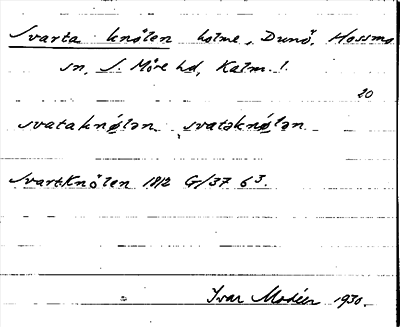 Svarta knölen holme, Dunö, Hossmo
sn, S. Möre hd, Kalm. l.
20
svataknølən svatəknølən
Svartknölen 1812 G/37 63.
Ivar Modéer 1930.